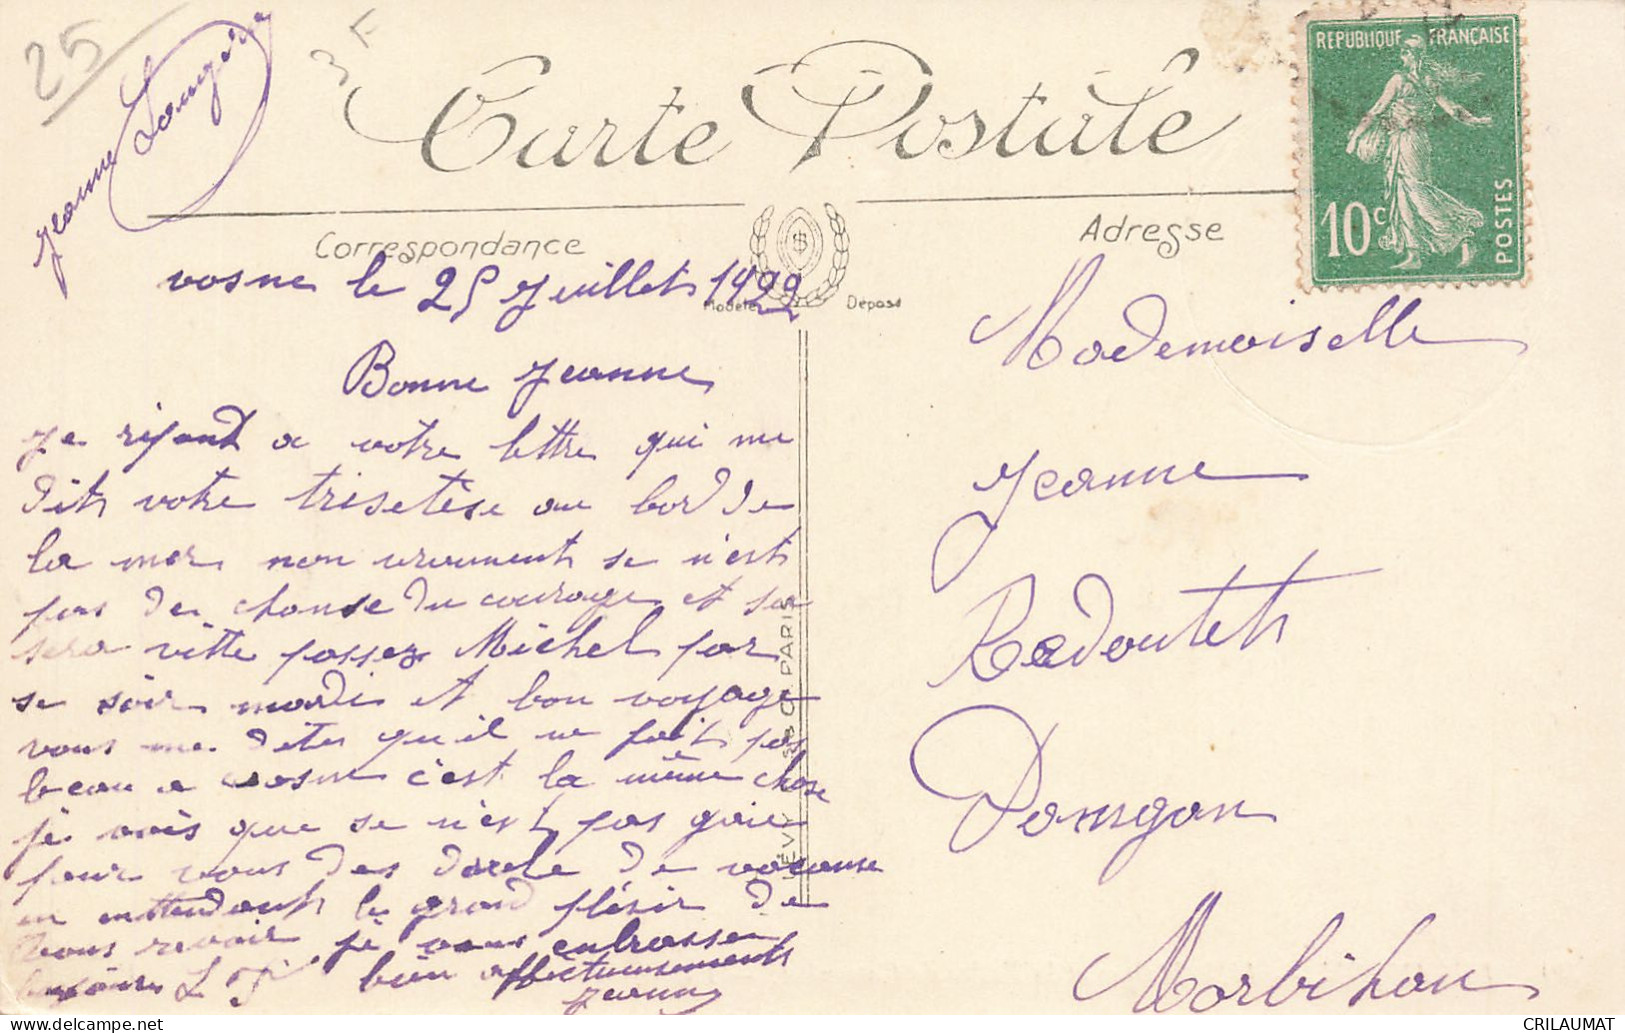 25
Jeanne
Carte Postale
REPUBLIQUE FRANÇAISE
10c
POSTES
Correspondance
Adresse
Modèle Déposé
vosne le 25 Juillet 1922
Bonne Jeanne
Je répond a votre lettre qui me
dit votre trisetèse au bord de
la mer non vraiment se n'est
pas de chanse du courage et sa
sera vitte passez Michel par
se soir mardi et bon voyage
vous me dites qu'il ne fait pas
beau a vosne c'est la même chose
je vois que se n'est pas gaie
pour vous des drole de vacanse
en attendant le grand plésir de
vous revoir je vous embrasse
bien affectueusements
Jeanne
LÉVY PARIS
Mademoiselle
Jeanne
Redoutet
Domgan
Morbihan
CRILAUMAT